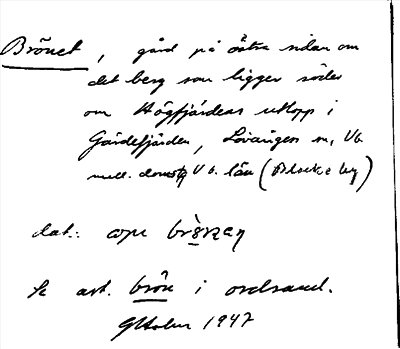 Brånet, gård på östra sidan om
det berg som ligger söder
om Högfjärdens utlopp i
Gärdefjärden, Lövångers sn, Vb.
mell. domsg Vb. län (Blocke by)
dat.:
Se art. brån i ordsaml.
1947